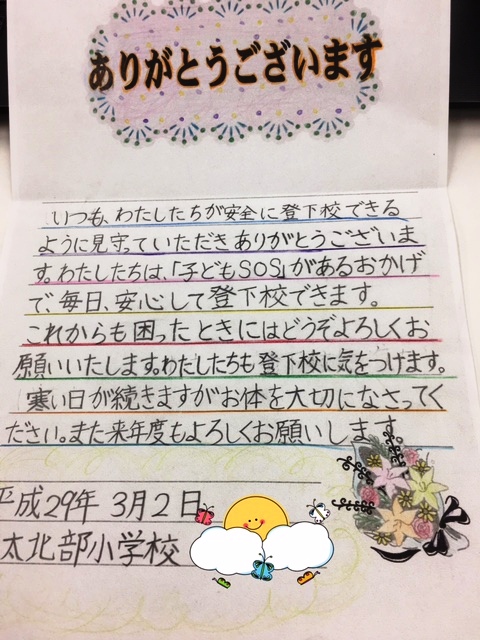 ありがとうございます
いつも、わたしたちが安全に登下校できる
ように見守っていただきありがとうございま
す。わたしたちは、「子どもSOS」があるおかげ
で、毎日、安心して登下校できます。
これからも困ったときにはどうぞよろしくお
願いいたします。わたしたちも登下校に気をつけます。
寒い日が続きますがお体を大切になさってく
ださい。また来年度もよろしくお願いします。
平成29年 3月2日
太北部小学校